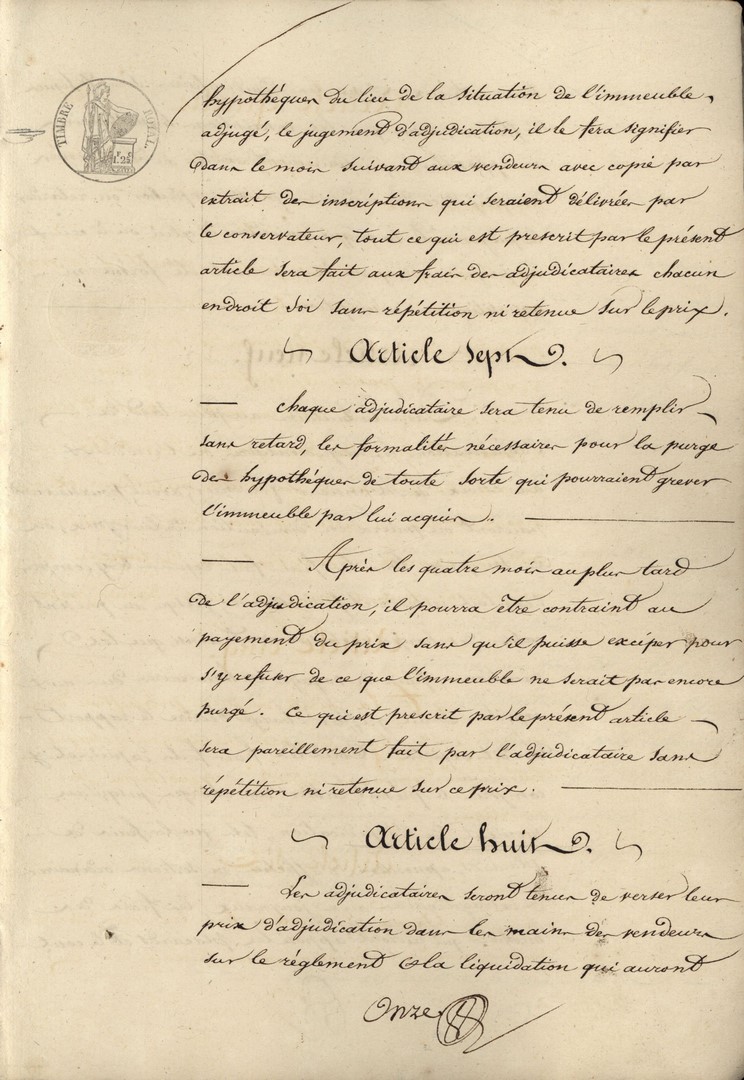 TIMBRE ROYAL.
1 F. 25
hypothéques du lieu de la situation de l'immeuble
adjugé, le jugement d'adjudication, il le fera signifier
dans le mois suivant aux vendeurs avec copie par
extrait des inscriptions qui seraient délivrées par
le conservateur, tout ce qui est prescrit par le présent
article sera fait aux frais des adjudicataires chacun
endroit soi sans répétition ni retenue sur le prix.
Article Sept.
chaque adjudicataire sera tenu de remplir
sans retard, les formalités nécessaires pour la purge
des hypothéques de toute sorte qui pourraient grever
l'immeuble par lui acquis.
Après les quatre mois au plus tard
de l'adjudication, il pourra être contraint au
payement du prix sans qu'il puisse exciper pour
s'y refuser de ce que l'immeuble ne serait pas encore
purgé. Ce qui est prescrit par le présent article
sera pareillement fait par l'adjudicataire sans
répétition ni retenue sur ce prix.
Article huit.
Les adjudicataires seront tenus de verser leur
prix d'adjudication dans les mains des vendeurs
sur le réglement & la liquidation qui auront
Onze